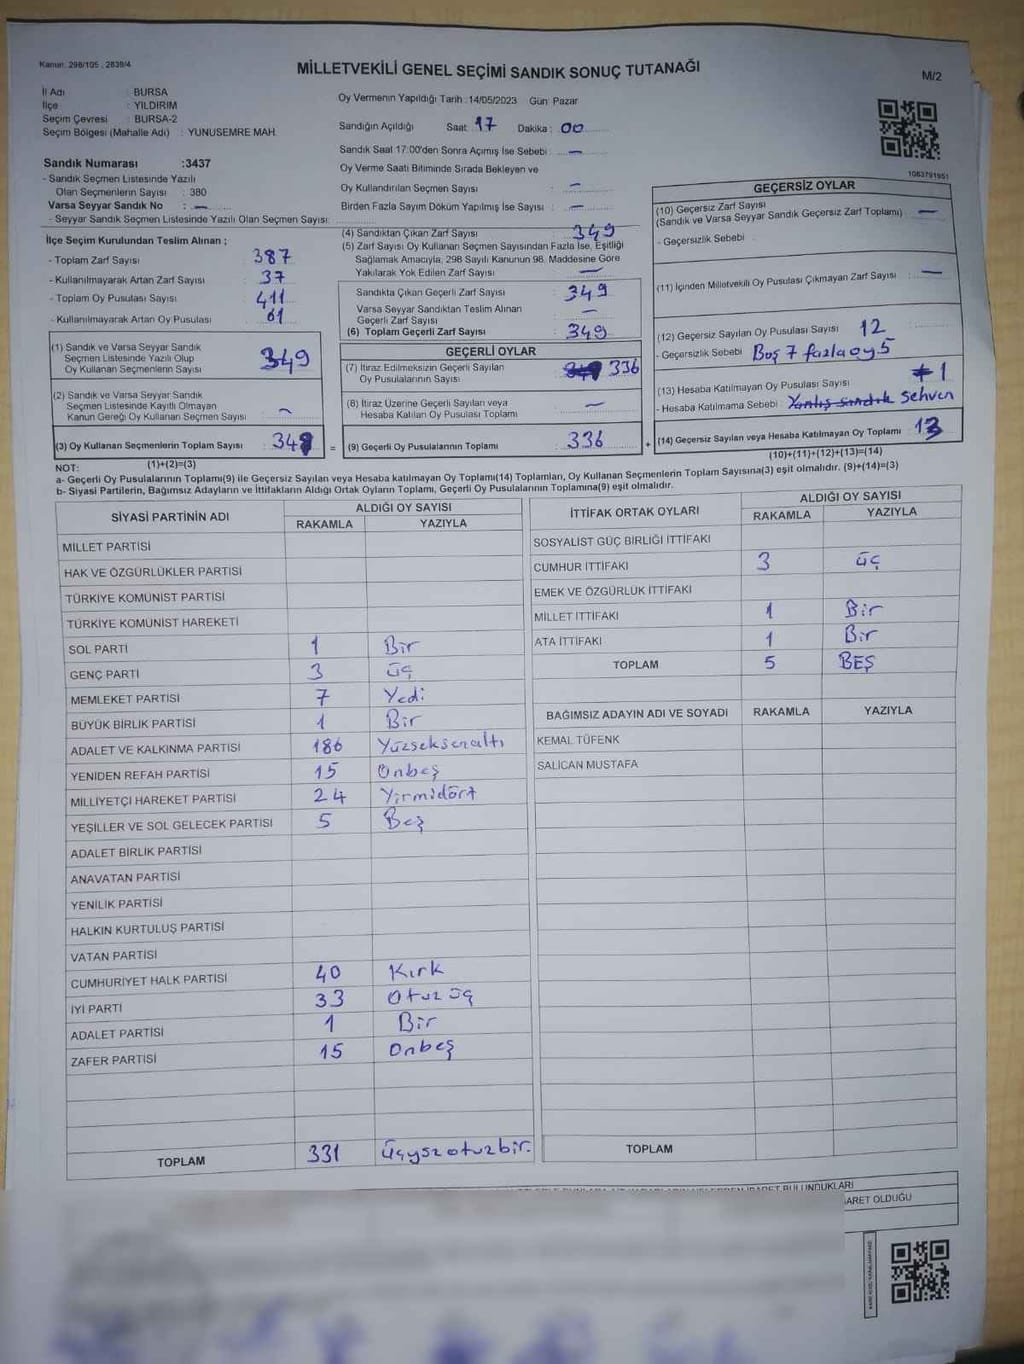 Kanun: 298/105 , 2839/4
MİLLETVEKİLİ GENEL SEÇİMİ SANDIK SONUÇ TUTANAĞI
M/2
İl Adı : BURSA
İlçe : YILDIRIM
Seçim Çevresi : BURSA-2
Seçim Bölgesi (Mahalle Adı) : YUNUSEMRE MAH.
Oy Vermenin Yapıldığı Tarih :14/05/2023 Gün: Pazar
Sandığın Açıldığı Saat: 17 Dakika: 00
Sandık Saat 17:00'den Sonra Açımış İse Sebebi : —
Oy Verme Saati Bitiminde Sırada Bekleyen ve
Oy Kullandırılan Seçmen Sayısı : —
Birden Fazla Sayım Döküm Yapılmış İse Sayısı : —
1083791951
Sandık Numarası :3437
- Sandık Seçmen Listesinde Yazılı
Olan Seçmenlerin Sayısı : 380
Varsa Seyyar Sandık No : —
- Seyyar Sandık Seçmen Listesinde Yazılı Olan Seçmen Sayısı:
İlçe Seçim Kurulundan Teslim Alınan ;
- Toplam Zarf Sayısı : 387
- Kullanılmayarak Artan Zarf Sayısı : 37
- Toplam Oy Pusulası Sayısı : 411
- Kullanılmayarak Artan Oy Pusulası : 61
(1) Sandık ve Varsa Seyyar Sandık
Seçmen Listesinde Yazılı Olup
Oy Kullanan Seçmenlerin Sayısı : 349
(2) Sandık ve Varsa Seyyar Sandık
Seçmen Listesinde Kayıtlı Olmayan
Kanun Gereği Oy Kullanan Seçmen Sayısı : —
(3) Oy Kullanan Seçmenlerin Toplam Sayısı : 349 =
(1)+(2)=(3)
(4) Sandıktan Çıkan Zarf Sayısı : 349
(5) Zarf Sayısı Oy Kullanan Seçmen Sayısından Fazla İse, Eşitliği
Sağlamak Amacıyla, 298 Sayılı Kanunun 98. Maddesine Göre
Yakılarak Yok Edilen Zarf Sayısı : —
Sandıkta Çıkan Geçerli Zarf Sayısı : 349
Varsa Seyyar Sandıktan Teslim Alınan
Geçerli Zarf Sayısı : —
(6) Toplam Geçerli Zarf Sayısı : 349
GEÇERLİ OYLAR
(7) İtiraz Edilmeksizin Geçerli Sayılan
Oy Pusulalarının Sayısı : 336
(8) İtiraz Üzerine Geçerli Sayılan veya
Hesaba Katılan Oy Pusulası Toplamı : —
(9) Geçerli Oy Pusulalarının Toplamı : 336 +
GEÇERSİZ OYLAR
(10) Geçersiz Zarf Sayısı
(Sandık ve Varsa Seyyar Sandık Geçersiz Zarf Toplamı) : —
- Geçersizlik Sebebi :
(11) İçinden Milletvekili Oy Pusulası Çıkmayan Zarf Sayısı : —
(12) Geçersiz Sayılan Oy Pusulası Sayısı : 12
- Geçersizlik Sebebi : Boş 7 fazla oy 5
(13) Hesaba Katılmayan Oy Pusulası Sayısı : 1
- Hesaba Katılmama Sebebi : Yanlış sandık sehven
(14) Geçersiz Sayılan veya Hesaba Katılmayan Oy Toplamı : 13
(10)+(11)+(12)+(13)=(14)
NOT:
a- Geçerli Oy Pusulalarının Toplamı(9) ile Geçersiz Sayılan veya Hesaba katılmayan Oy Toplamı(14) Toplamları, Oy Kullanan Seçmenlerin Toplam Sayısına(3) eşit olmalıdır. (9)+(14)=(3)
b- Siyasi Partilerin, Bağımsız Adayların ve İttifakların Aldığı Ortak Oyların Toplamı, Geçerli Oy Pusulalarının Toplamına(9) eşit olmalıdır.
SİYASİ PARTİNİN ADI ALDIĞI OY SAYISI
RAKAMLA YAZIYLA
MİLLET PARTİSİ
HAK VE ÖZGÜRLÜKLER PARTİSİ
TÜRKİYE KOMÜNİST PARTİSİ
TÜRKİYE KOMÜNİST HAREKETİ
SOL PARTİ 1 Bir
GENÇ PARTİ 3 üç
MEMLEKET PARTİSİ 7 Yedi
BÜYÜK BİRLİK PARTİSİ 1 Bir
ADALET VE KALKINMA PARTİSİ 186 Yüzseksenaltı
YENİDEN REFAH PARTİSİ 15 Onbeş
MİLLİYETÇİ HAREKET PARTİSİ 24 Yirmidört
YEŞİLLER VE SOL GELECEK PARTİSİ 5 Beş
ADALET BİRLİK PARTİSİ
ANAVATAN PARTİSİ
YENİLİK PARTİSİ
HALKIN KURTULUŞ PARTİSİ
VATAN PARTİSİ
CUMHURİYET HALK PARTİSİ 40 Kırk
İYİ PARTİ 33 Otuz üç
ADALET PARTİSİ 1 Bir
ZAFER PARTİSİ 15 Onbeş
TOPLAM 331 üçyüzotuzbir.
İTTİFAK ORTAK OYLARI ALDIĞI OY SAYISI
RAKAMLA YAZIYLA
SOSYALİST GÜÇ BİRLİĞİ İTTİFAKI
CUMHUR İTTİFAKI 3 üç
EMEK VE ÖZGÜRLÜK İTTİFAKI
MİLLET İTTİFAKI 1 Bir
ATA İTTİFAKI 1 Bir
TOPLAM 5 BEŞ
BAĞIMSIZ ADAYIN ADI VE SOYADI RAKAMLA YAZIYLA
KEMAL TÜFENK
SALİCAN MUSTAFA
TOPLAM
BULUNDUKLARI
ARET OLDUĞU